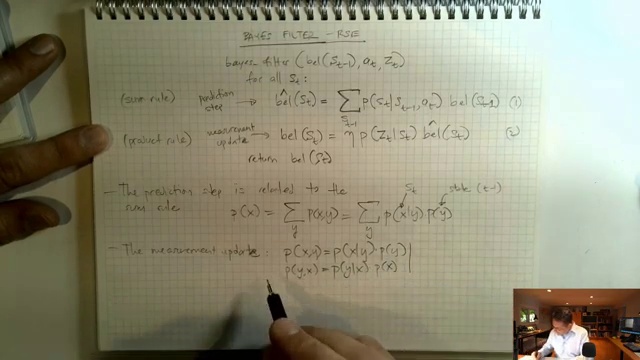 BAYES FILTER - RSE
bayes filter (bel(St-1), at, Zt)
for all St:
(sum rule) prediction step → bel̂(St) = ∑St-1 p(St|St-1, at) bel(St-1) (1)
(product rule) measurement update → bel(St) = η p(Zt|St) bel̂(St) (2)
return bel(St)
St state (t-1)
- The prediction step is related to the
sum rule p(x) = ∑y p(x,y) = ∑y p(x|y) p(y)
- The measurement update: p(x,y) = p(x|y) · p(y)
p(y,x) = p(y|x) p(x)